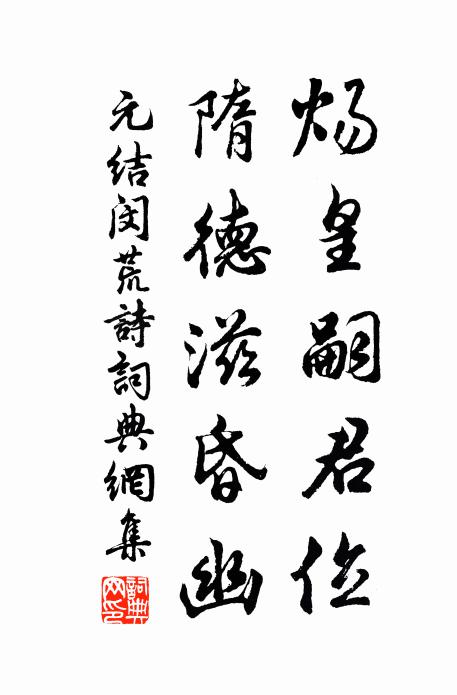 煬皇嗣君位
隋德滋昏幽
元结闵荒詩詞典網集
詞典網印